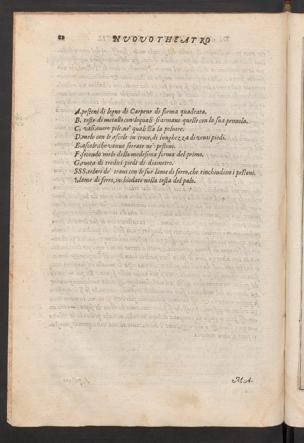 88 NVOVO THEATRO
A. pestoni di legno di Carpene di forma quadrata.
B. teste di metallo con lequali s'armano quelle con la sua pennola.
C. vasi, ouero pile, ne' quali sta la poluere.
D. melo con le asole in croce, di longhezza di venti piedi.
E. asole, che vanno serrate ne' pestoni.
F. secondo melo della medesima forma del primo.
G. ruota di tredici piedi di diametro.
SSS. telari de' traui con le sue lame di ferro, che rinchiudono i pestoni.
V. lame di ferro, inchiodate nella testa del palo.
MA.